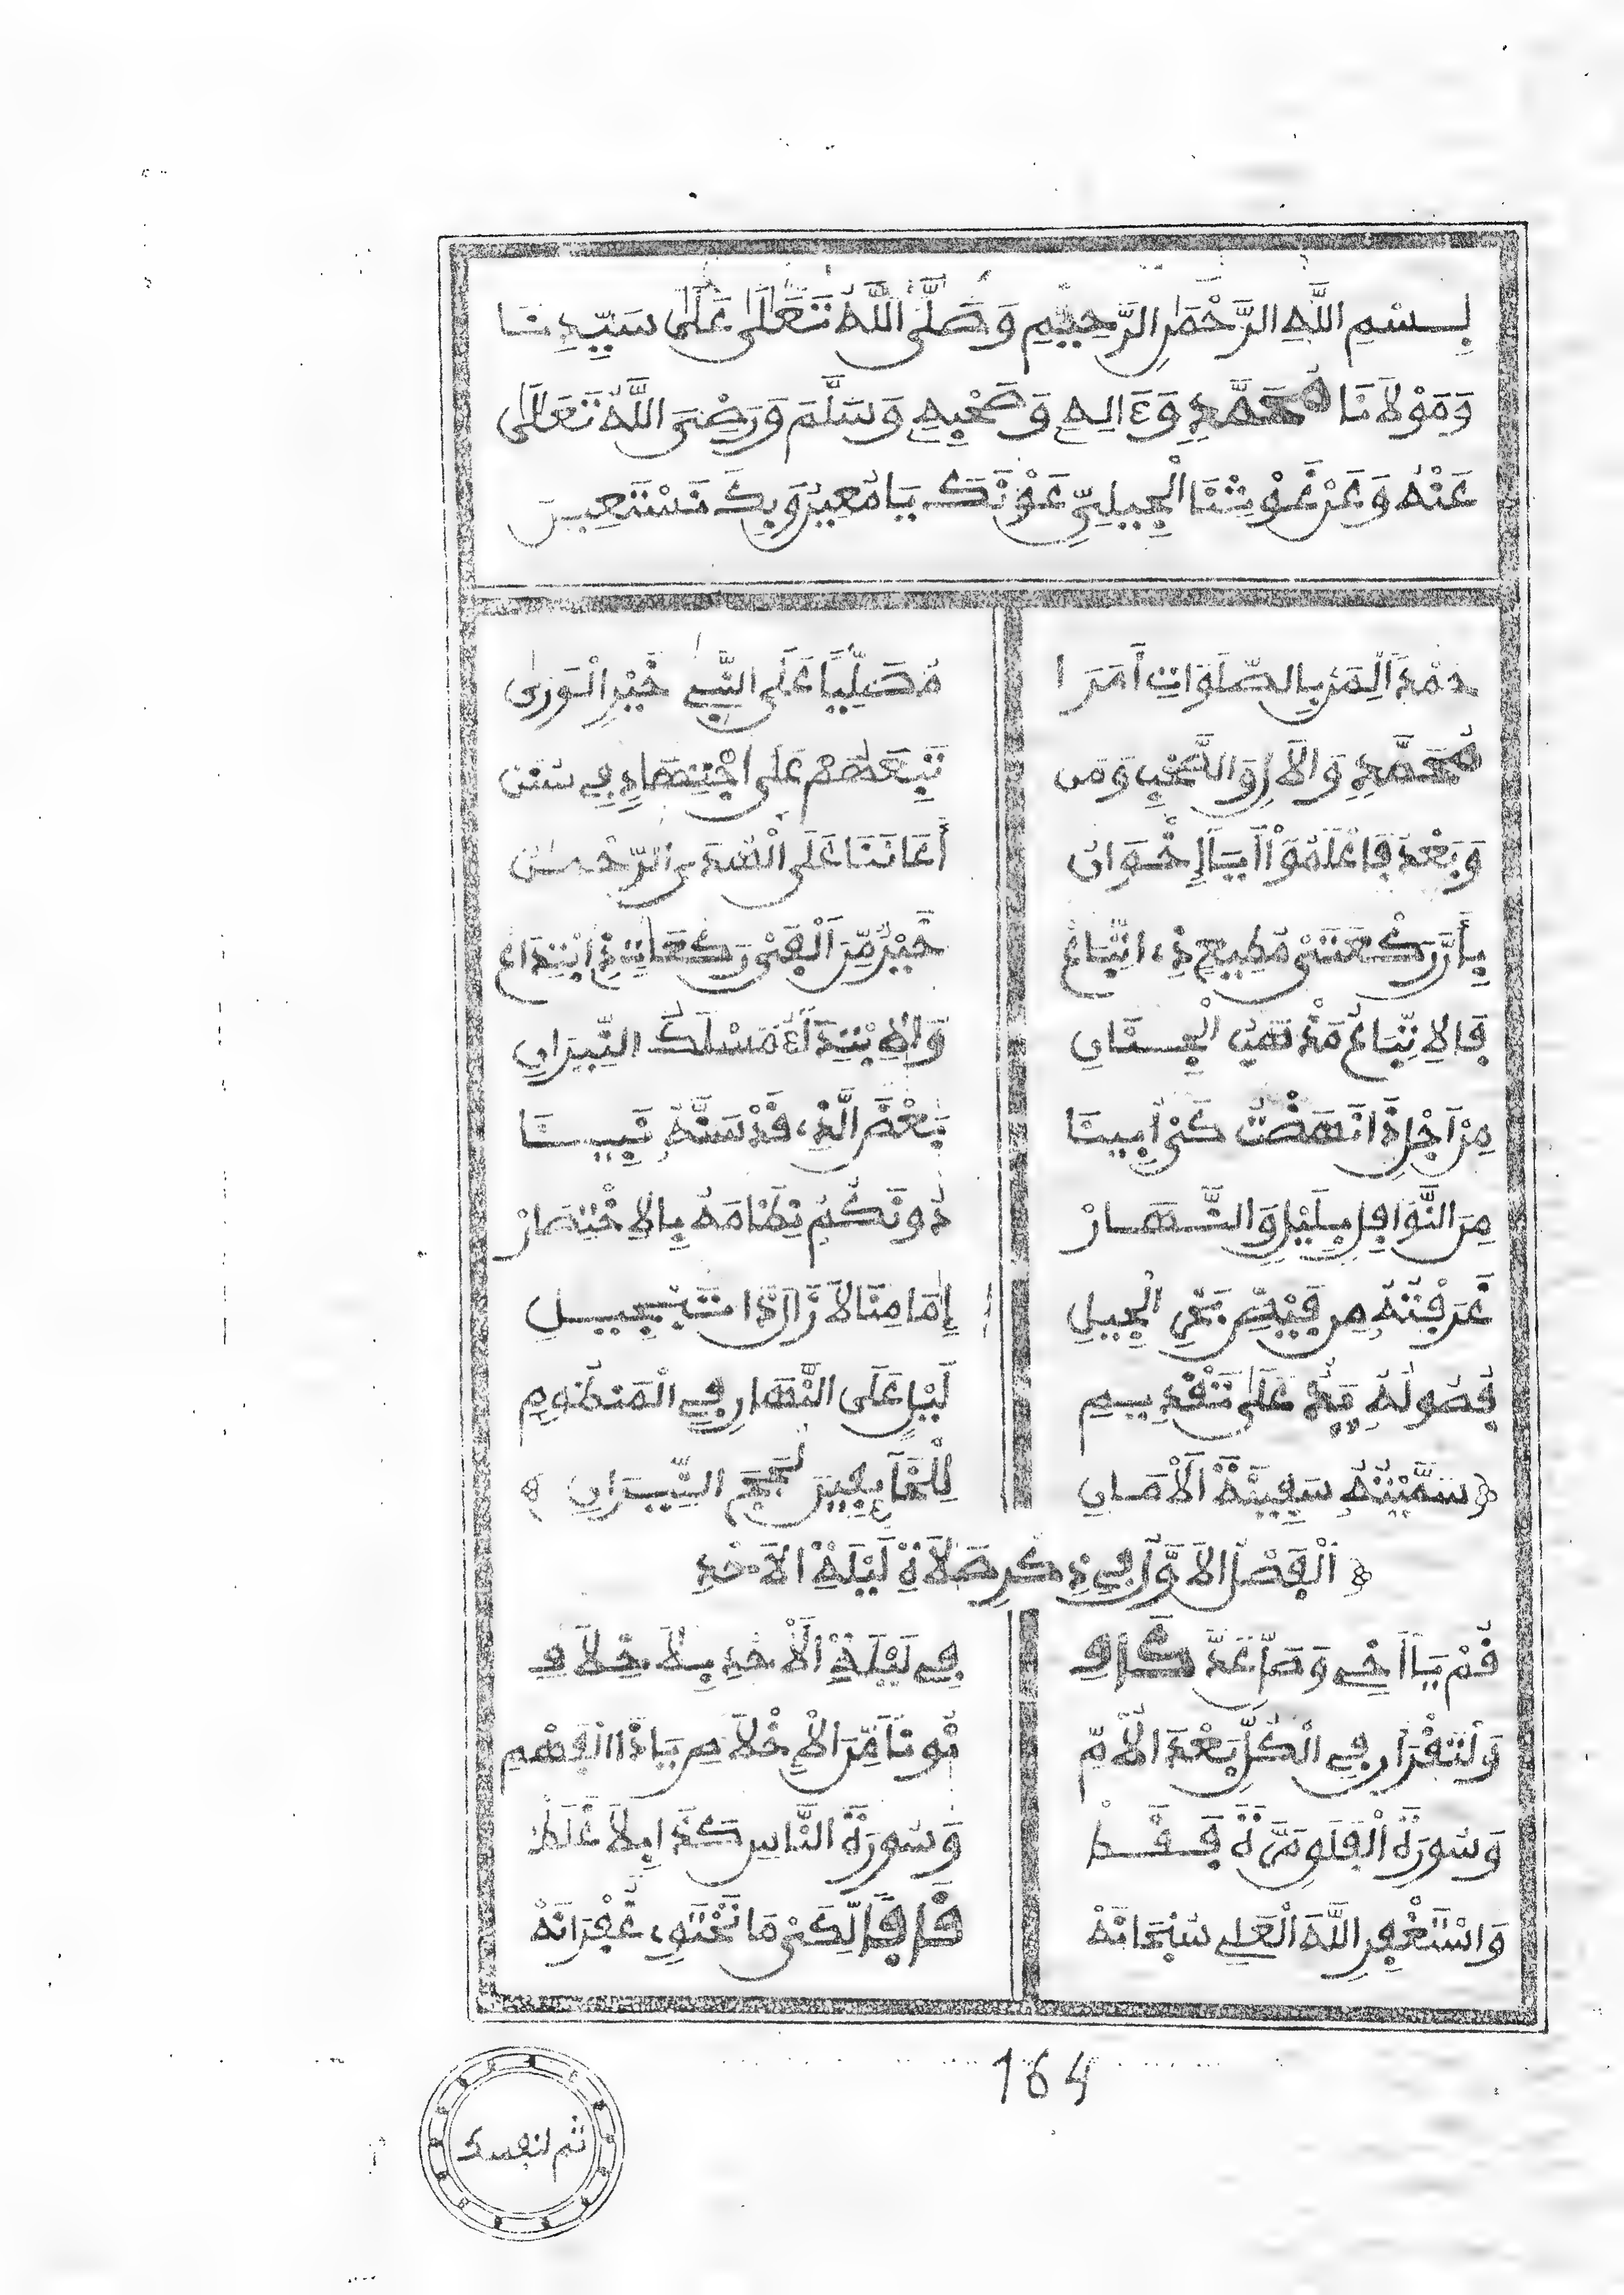 بِسْمِ اللَّهِ الرَّحْمَٰنِ الرَّحِيمِ وَصَلَّى اللَّهُ تَعَالَى عَلَى سَيِّدِنَا
وَمَوْلَانَا مُحَمَّدٍ وَءَالِهِ وَصَحْبِهِ وَسَلَّمَ وَرَضِيَ اللَّهُ تَعَالَى
عَنْهُ وَعَنْ غَوْثِنَا الْجِيلِيِّ عَوْنَكَ يَا مُعِينُ وَبِكَ نَسْتَعِينُ
حَمْدًا لِمَنْ بِالصَّلَوَاتِ أَمَرَا مُصَلِّيًا عَلَى النَّبِي خَيْرِ الْوَرَى
مُحَمَّدٍ وَالْآلِ وَالصَّحْبِ وَمَن تَبِعَهُمْ عَلَى اجْتِهَادٍ فِي سُنَن
وَبَعْدُ فَاعْلَمُوا أَيَا إِخْوَانُ أَعَانَنَا عَلَى الْهُدَى الرَّحْمَٰنُ
بِأَنَّ رَكْعَتَيْ مُطِيعٍ ذِي اتِّبَاعْ خَيْرٌ مِّنَ الْفَيْ رَكَعَاتٍ ذِي ابْتِدَاعْ
فَالِاتِّبَاعُ مَذْهَبُ الْجِنَانِ وَالِابْتِدَاعُ مَسْلَكُ النِّيرَانِ
مِنْ أَجْلِ ذَا نَهَضْتُ كَيْ أُبِينَا بَعْضَ الَّذِي قَدْ سَنَّهُ نَبِينَا
مِنَ النَّوَافِلِ بِلَيْلٍ وَالنَّهَارْ دُونَكُمُ نِظَامَهُ بِالِاخْتِصَارْ
غَرَفْتُهُ مِن فَيْضِ بَحْرِ الْجِيلِ إِمَامِنَا لَا زَالَ ذَا تَبْجِيلِ
فُصُولُهُ يَدٌ عَلَى تَقْدِيمِ لَيْلٍ عَلَى النَّهَارِ فِي الْمَنظُومِ
سَمَّيْتُهُ سَفِينَةَ الْأَمَانِ لِلْخَائِفِينَ لُجَجَ النِّيرَانِ
اَلْفَصْلُ الْأَوَّلُ فِي ذِكْرِ صَلَاةِ لَيْلَةِ الْأَحَدِ
قُمْ يَا أَخِي وَصَلِّ عَدَّ كَافِ فِي لَيْلَةِ الْأَحَدِ بِلَا خِلَافِ
وَلْتَقْرَأَنْ فِي الْكُلِّ بَعْدَ الْأُمِّ نُونًا مِّنَ الْإِخْلَاصِ يَا ذَا الْفَهْمِ
وَسُورَةَ الْفَلَقِ مَرَّةً فَقَطْ وَسُورَةَ النَّاسِ كَذَا بِلَا غَلَطْ
وَاسْتَغْفِرِ اللَّهَ الْعَلِي سُبْحَانَهُ قَافًا لِكَيْ مَا تَحْتَوِي غُفْرَانَهُ
164
ثم لنفسك